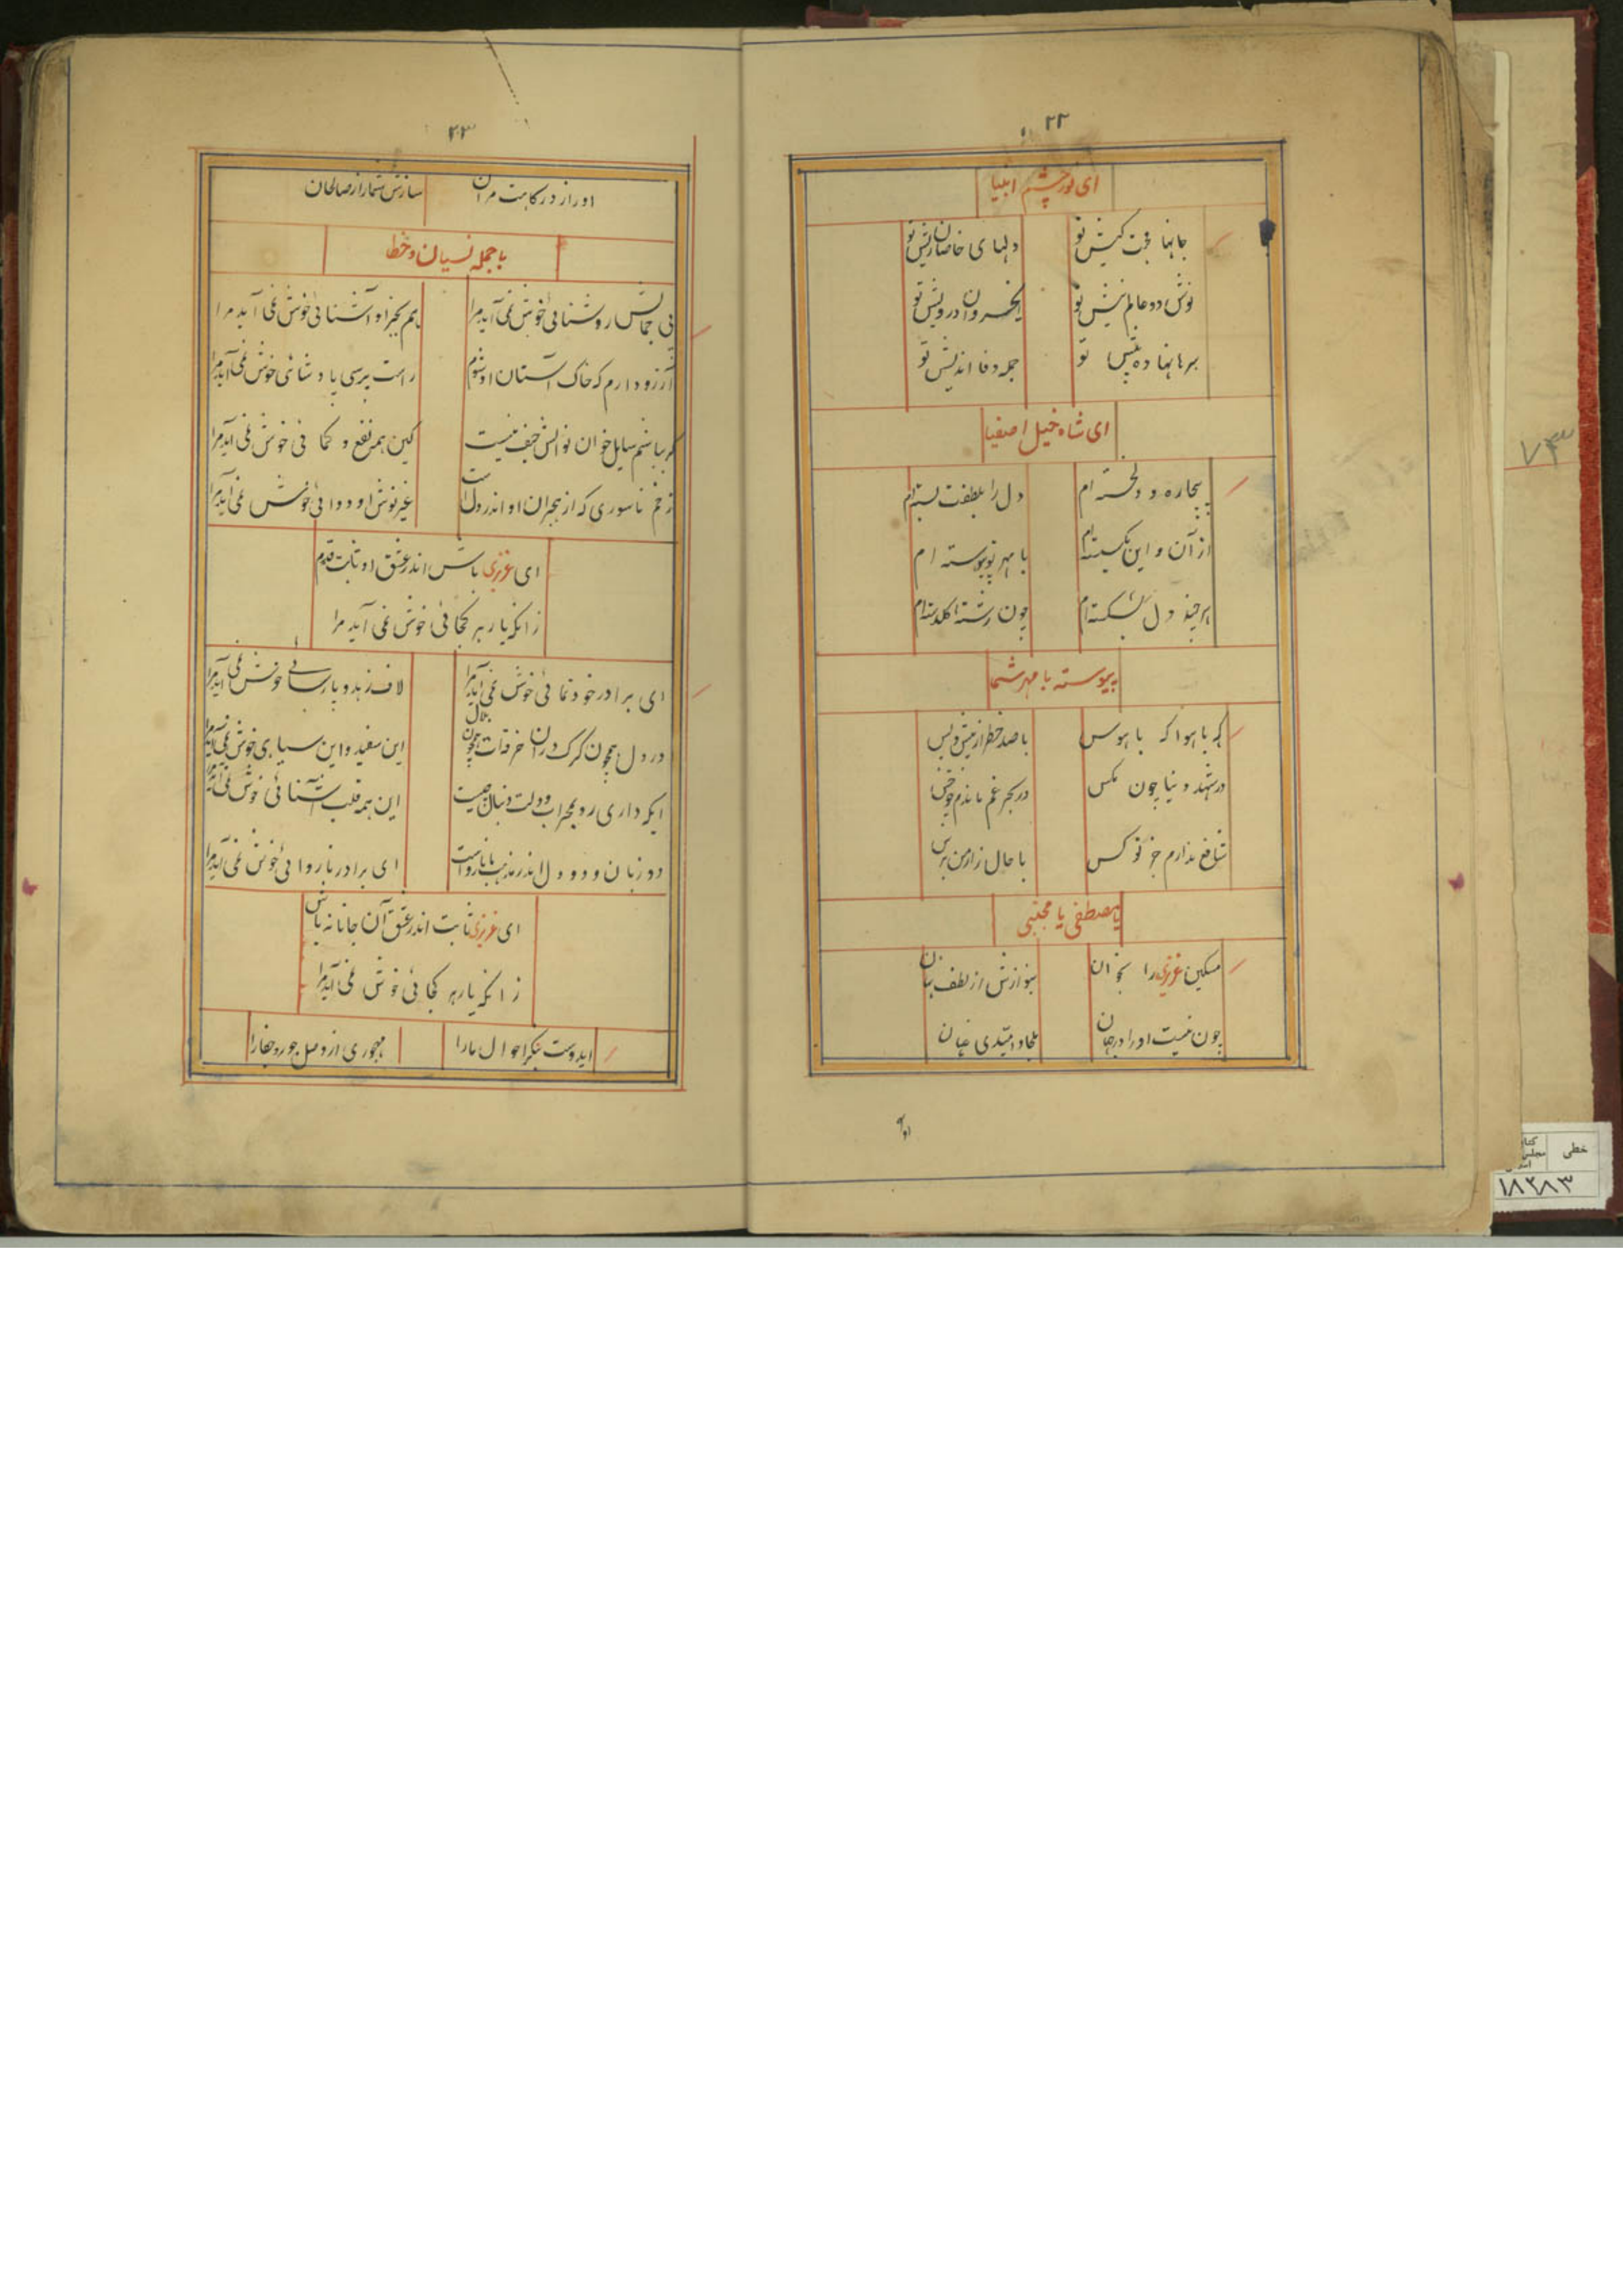 ۲۲
ای نور چشم انبیا
جانها محبت کیش تو دلهای خاصان ریش تو
نوش دو عالم نیش تو ایخسروان درویش تو
سرها نهاده پیش تو جمله وفا اندیش تو
ای شاه خیل اصفیا
بیچاره و دلخسته ام دل را بلطفت بسته ام
از آن و این بگسسته ام با مهر تو پیوسته ام
هر چند دل بشکسته ام چون رشته گلدسته ام
پیوسته با مهر شما
که با هوا که با هوس با صد خطر از پیش و پس
در شهد دنیا چون مکس در بحر غم ماندم چو خس
شافع ندارم جز تو کس با حال زار من برس
یا مصطفی یا مجتبی
مسکین عزیزی را بخوان بنوازش از لطف نهان
چون نیست او را در جهان ملجاء و امیدی عیان
او را
۲۳
او را ز درگاهت مران سازش شمار از صالحان
با جمله نسیان و خطا
بی جمالش روشنائی خوش نمی آید مرا هم بجز او آشنائی خوش نمی آید مرا
آرزو دارم که خاک آستان او شوم راست پرسی پادشائی خوش نمی آید مرا
گر بباشم سایل خوان نوالش حیف نیست کین همه نفع و خوش نمی آید مرا
زخم ناسوری که از هجران او اندر دل است غیر نوش او دوائی خوش نمی آید مرا
ای عزیزی باش اندر عشق او ثابت قدم
زانکه یار هر کجائی خوش نمی آید مرا
ای برادر خودنمائی خوش نمی آید مرا لاف زهد و پارسائی خوش نمی آید مرا
در دل همچون کرک دران خرقه ات همچون بلال این سفید و این سیاهی خوش نمی آید مرا
ایکه داری رو بمحراب و دلت دنبال چیست این همه قلب آشنائی خوش نمی آید مرا
دو زبان و دو دل اندر مذهب ما نارواست ای برادر ناروائی خوش نمی آید مرا
ای عزیزی ثابت اندر عشق آن جانانه باش
زانکه یار هر کجائی خوش نمی آید مرا
ایدوست بنگر احوال ما را مهجوری از وصل جور و جفا را
۷۳
خطی
۱۸۲۸۳